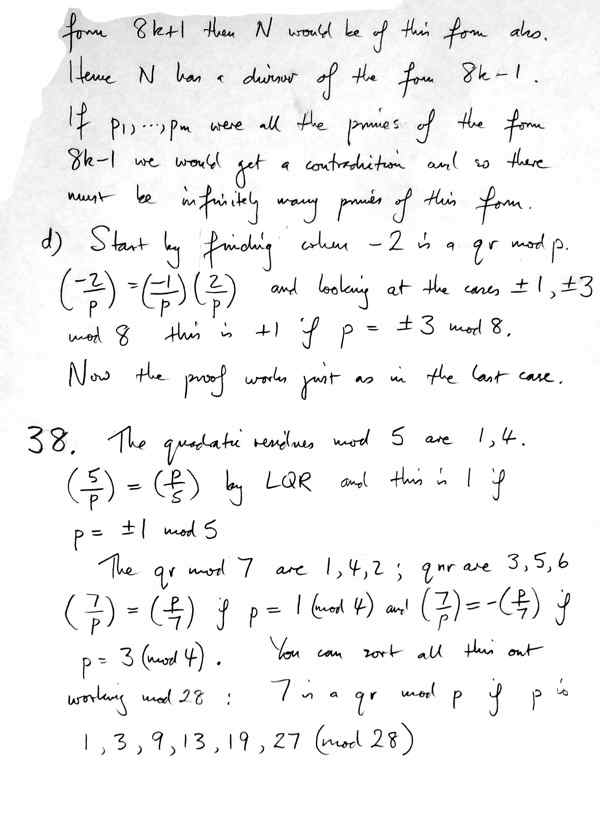 form 8k+1 then N would be of this form also.
Hence N has a divisor of the form 8k-1.
If p1,...,pm were all the primes of the form
8k-1 we would get a contradiction and so there
must be infinitely many primes of this form.
d) Start by finding when -2 is a qr mod p.
(-2/p) = (-1/p)(2/p) and looking at the cases ±1, ±3
mod 8 this is +1 if p = ±3 mod 8.
Now the proof works just as in the last case.
38. The quadratic residues mod 5 are 1, 4.
(5/p) = (p/5) by LQR and this is 1 if
p = ±1 mod 5
The qr mod 7 are 1, 4, 2; qnr are 3, 5, 6
(7/p) = (p/7) if p = 1 (mod 4) and (7/p) = -(p/7) if
p = 3 (mod 4). You can sort all this out
working mod 28: 7 is a qr mod p if p is
1, 3, 9, 13, 19, 27 (mod 28)